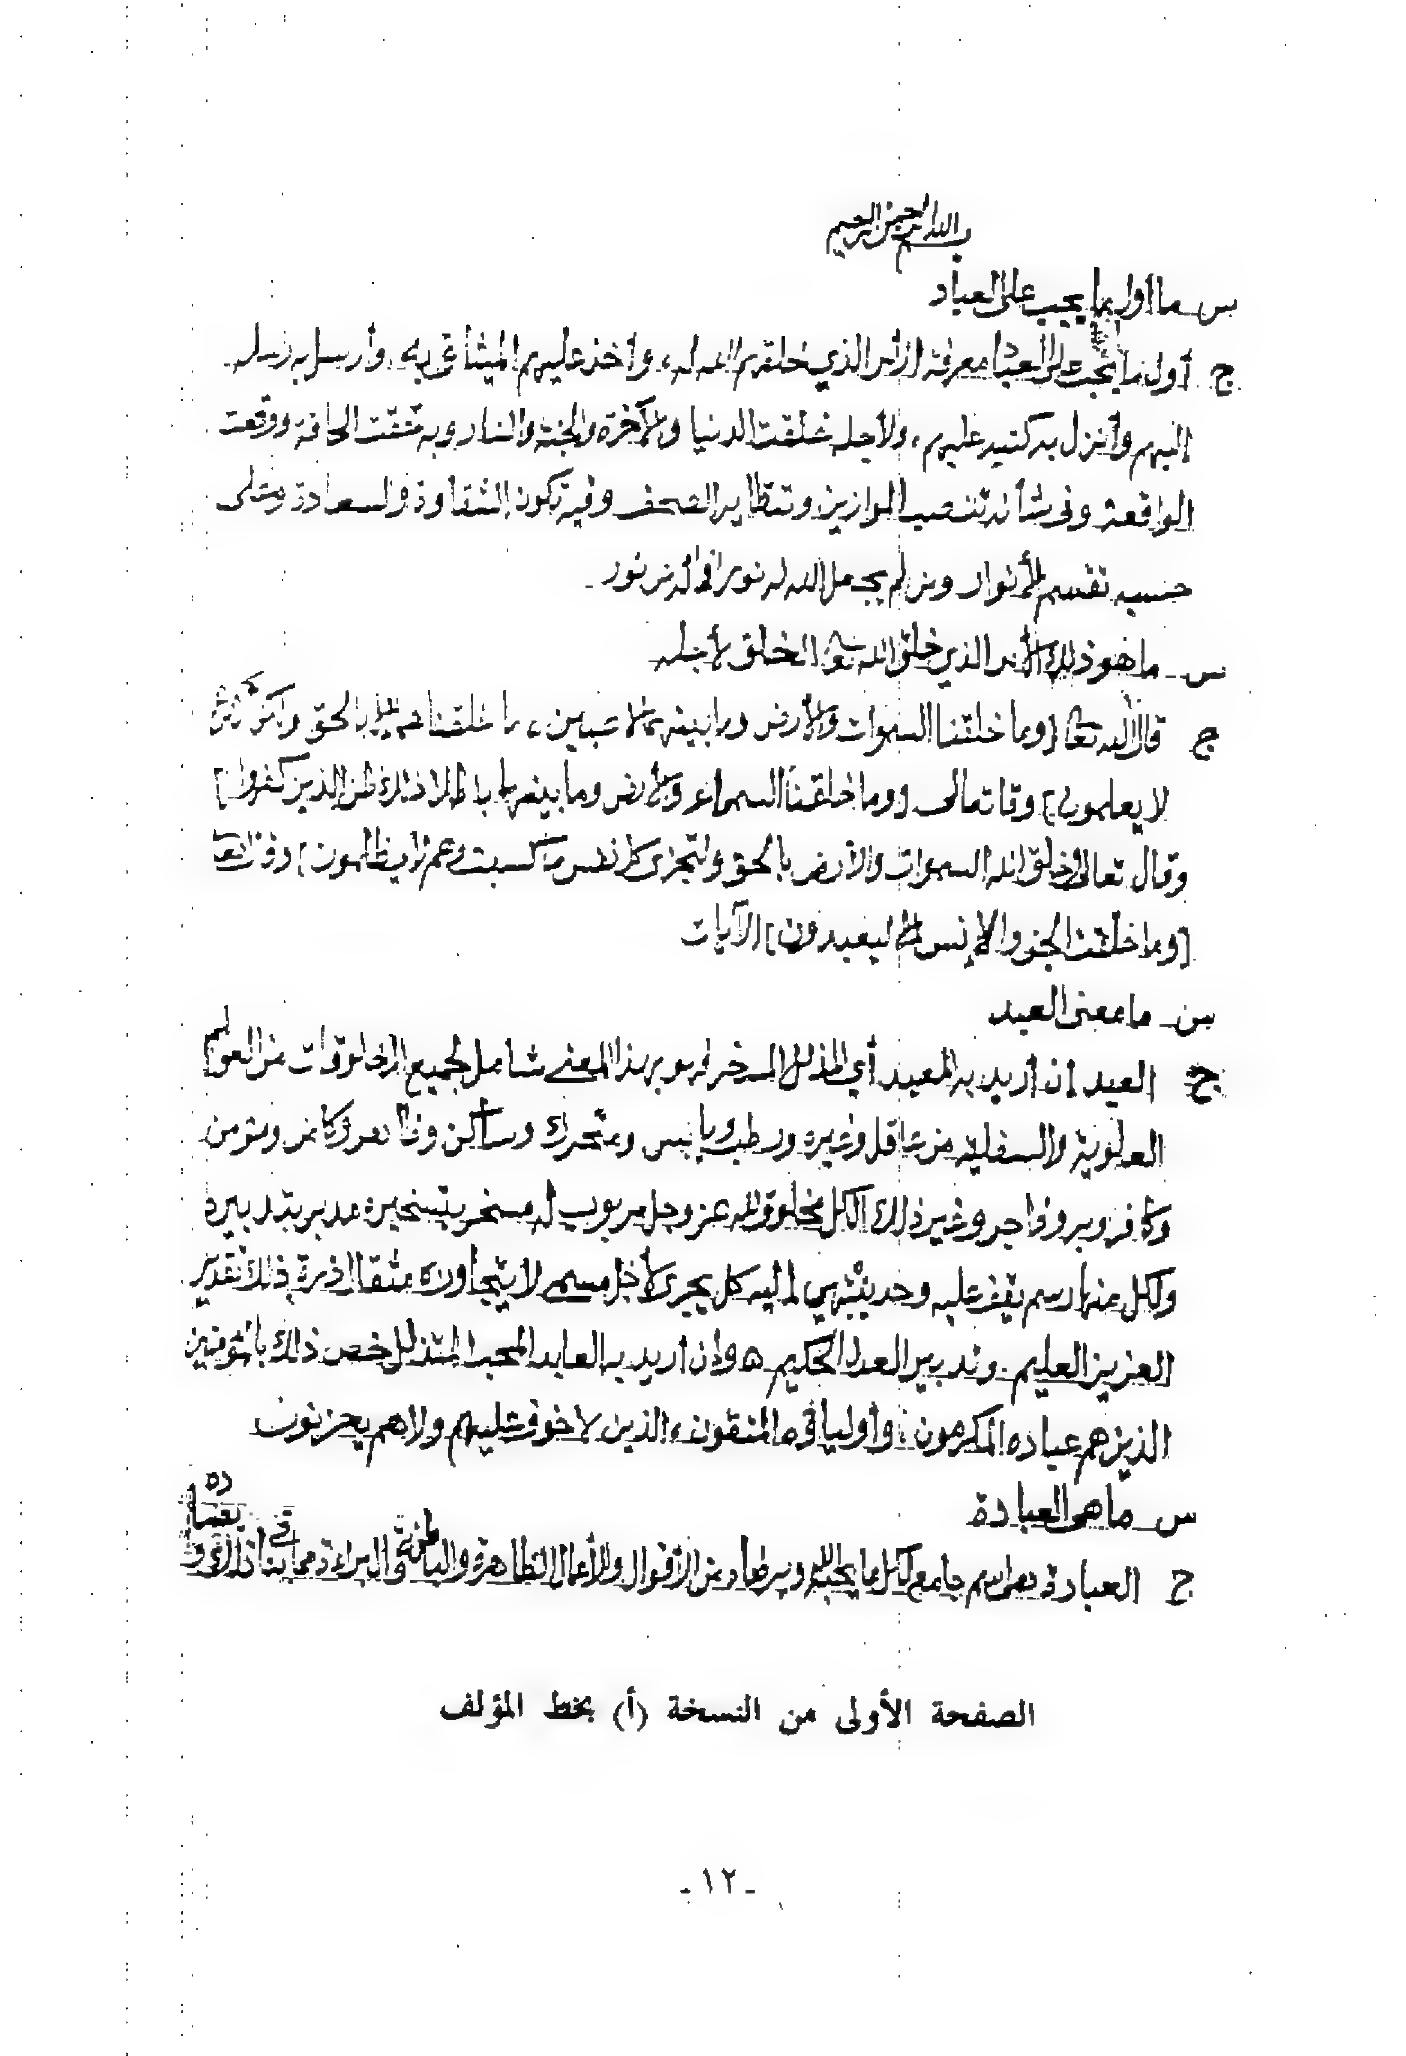 بسم الله الرحمن الرحيم
س - ما أول ما يجب على العباد
ج أول ما يجب على العباد معرفة الأمر الذي خلقهم الله له، وأخذ عليهم الميثاق به، وأرسل به رسله
إليهم وأنزل به كتبه عليهم، ولأجله خلقت الدنيا والآخرة والجنة والنار وبه حقت الحاقة ووقعت
الواقعة وفي شأنه تنصب الموازين وتتطاير الصحف وفيه تكون الشقاوة والسعادة وعلى
حسبه تقسم الأنوار ومن لم يجعل الله له نورا فما له من نور -
س - ما هو ذلك الأمر الذي خلق الله الخلق لأجله
ج قال الله تعالى [وما خلقنا السموات والأرض وما بينهما لاعبين، ما خلقناهما إلا بالحق ولكن أكثرهم
لا يعلمون] وقال تعالى [وما خلقنا السماء والأرض وما بينهما باطلا ذلك ظن الذين كفروا]
وقال تعالى [وخلق الله السموات والأرض بالحق ولتجزى كل نفس بما كسبت وهم لا يظلمون] وقال تعا
[وما خلقت الجن والإنس إلا ليعبدون] الآيات
س - ما معنى العبد
ج العبد إن أريد به المعبد أي المذلل المسخر فهو بهذا المعنى شامل لجميع المخلوقات من العوالم
العلوية والسفلية من عاقل وغيره ورطب ويابس ومتحرك وساكن وظاهر وكامن ومؤمن
وكافر وبر وفاجر وغير ذلك الكل مخلوق لله عز وجل مربوب له مسخر بتسخيره مدبر بتدبيره
ولكل منها رسم يقف عليه وحد ينتهي إليه كل يجري لأجل مسمى لا يتجاوزه مثقال ذرة ذلك تقدير
العزيز العليم وتدبير العدل الحكيم ه وإن أريد به العابد المحب المتذلل خص ذلك بالمؤمنين
الذين هم عباده المكرمون وأولياؤه المتقون، الذين لا خوف عليهم ولا هم يحزنون
س - ما هي العبادة
ج العبادة هي اسم جامع لكل ما يحبه الله ويرضاه من الأقوال والأعمال الظاهرة والباطنة والبراءة مما ينافي ذلك و
الصفحة الأولى من النسخة (أ) بخط المؤلف
- ١٢ -